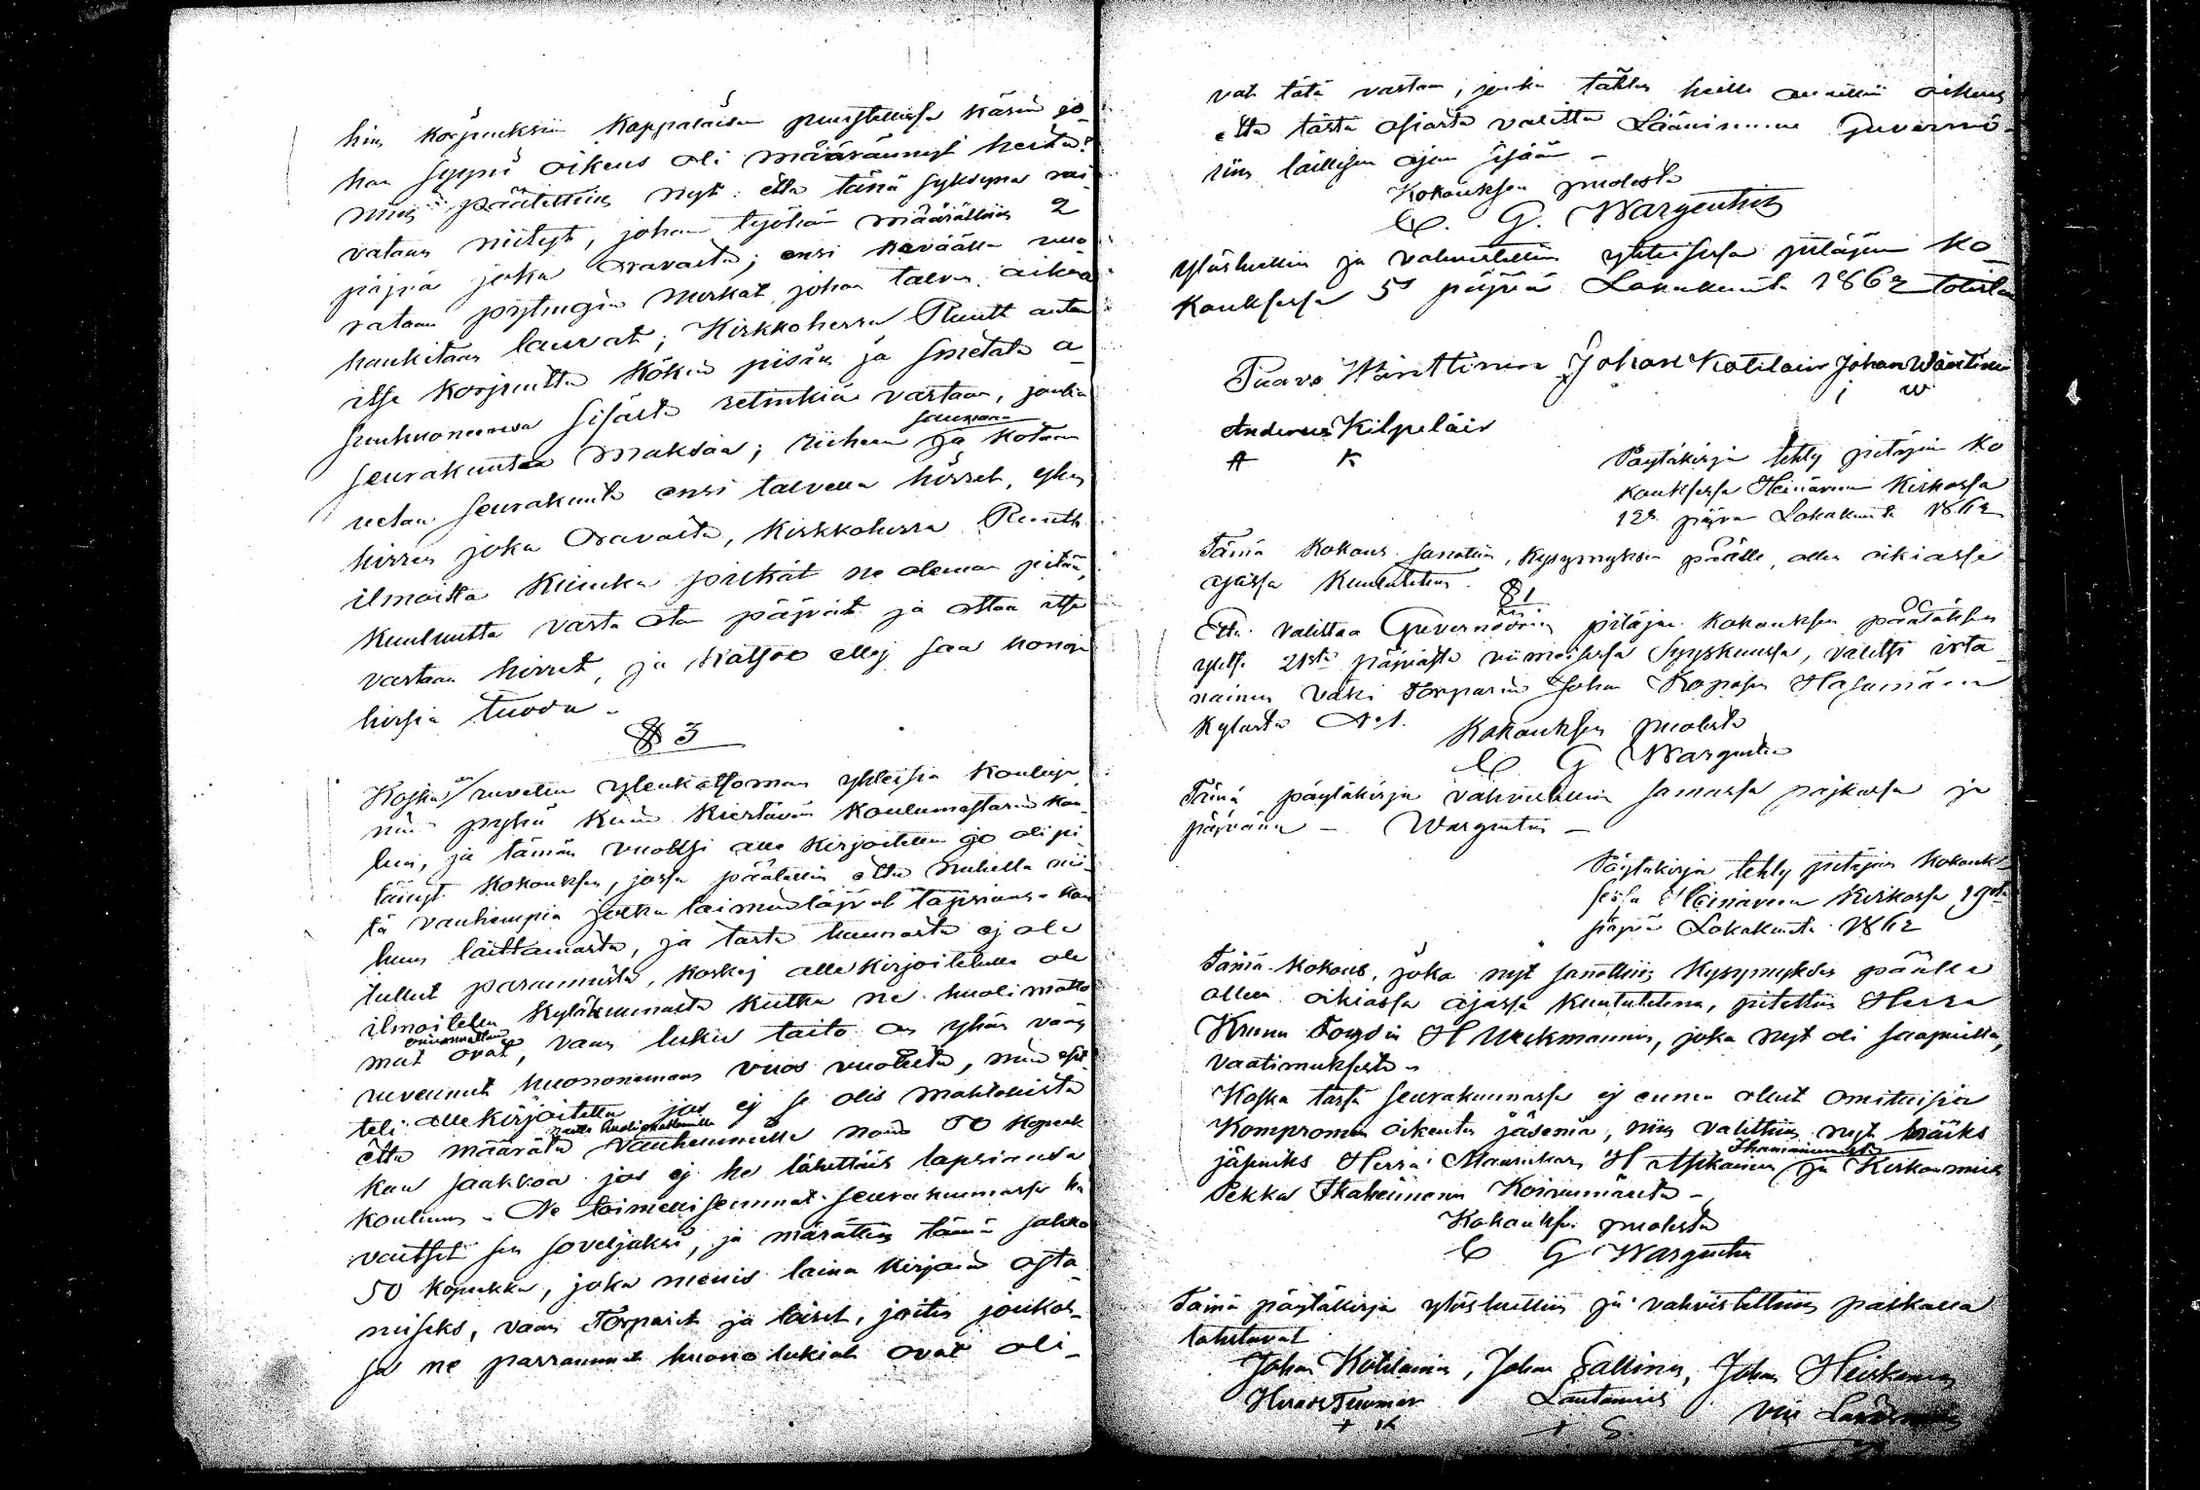 hin korjauksiin Kappalaisen puustellissa käsin jo-
han syyni oikeus oli määrännyt heitä?
niin päätettiin nyt: että tänä syksynä rai-
vataan niityt, johon työhön määrättiin 2
päjvä joka Oravalta; ensi keväällä
rataan merkat johon talven aikana
hankitaan lauvat; Kirkkoherra Ruuth antaa
itse korjuutta Kökin piisin ja Smetata a-
suuhuoneensa sisältä retinkiä vastaan, jonka
seurakuntaa maksaa; riihen ja saunan kotaan
vetää seurakunta ensi talvella hirret, yhen
hirren joka Oravalta, Kirkkoherra Ruuth
ilmoitta kuinka pitkät ne oleman pitää,
kuuluutta vasta otan päjvät ja ottaa itse
vastaan hirret, ja katsoo ettej saa honoja
hirsiä tuoda -
§ 3
Koska on ruvettu ylenkatsomaan yhteisiä kouluja
niin pyhä kuin kiertävän koulumestarin kou-
lua, ja tämän vuoksi alla kirjoitettu jo oli pi-
tänyt kokouksen, jossa päätettiin että puhella nii-
tä vanhempia jotka laiminlöjvät lapsiansa kou-
luun laittamasta, ja tästä huumasta ej ole
tullut parannusta, koskej alla kirjoitetulle ole
ilmoitettu kyläkunnasta ketka ne huolimatto-
mat ovat, vaan lukin taito on yhän vaan
ruvennut huononemaan vuos vuodelta, niin esit-
teli alle kirjoitettu jos ej se olis mahdollista
että määrätä vanhemmille noin 50 kopeek
kan saakkoa jos ej he lähettäis lapsiansa
kouluun - Ne toimellisemmat seurakunnassa ha
vaitsit sen soveljaksi, ja märättiin tämä sakko
50 kopekka, joka menis laina kirjain osta-
miseks, vaan Torparit ja loiset, joiten joukos-
sa ne parraimmat huono lukiat ovat oli-
vat tätä vastaan, jonka tähten heille annettiin oikeus
että tästä asiasta valitta Läänimme Guvernö-
riin laillisen ajan sisään -
Kokouksen puolesta
C. G. Wargentin
Ylösluettiin ja vahvistettiin yhteisessä pitäjän ko-
kouksessa 5s päjvä Lokakuuta 1862 totista
Paavo Wänttinen Johan Kotilain Johan Wänttinen
i w
Anderus Kilpeläin
A K
Pöytäkirja tehty pitäjän ko
kouksessa Heinäveen Kirkossa
12s päjvä Lokakuuta 1862
Tämä kokous sanottiin kysymyksen päälle, ollen oikiassa
ajassa kuulutettu.
§ 1
Että valittaa Guvernöörin pitäjän kokouksen päätöksen
ylitse 21stä päjvästä viimeisessä Syyskuussa, valitsi irta-
nainen väki Torparin Johan Koposen Hasumäen
kylästä No 1. Kokouksen puolesta
C G Wargentin
Tämä pöytäkirja vahvistettiin samassa pajkassa ja
päjvänä - Wargentin -
Pöytäkirja tehty pitäjän kokouk-
sessa Heinäveen Kirkossa 19sta
päjvä Lokakuuta 1862
Tämä kokous, joka nyt sanottiin kysymyksen päälle
olleen oikiassa ajassa kuulutettuna, pitettiin Herra
Kruunu Foudin H Weckmannin, joka nyt oli saapuilla,
vaatimuksesta -
Koska tässä seurakunnassa ej ennen ollut omituisia
Kompromis oikeuten jäseniä, niin valittiin nyt
jäseniks Herra Maanviljel H ja Kirkonmies
Pekka Ikäheimonen Koivumäestä -
Kokouksen puolesta
C G Wargentin
Tämä pöytäkirja ylösluettiin ja vahvistettiin paikalla
totistavat
Johan Kotilainen, Johan Sallinen, Johan Heiskanen
Lautamies
+ K + S.